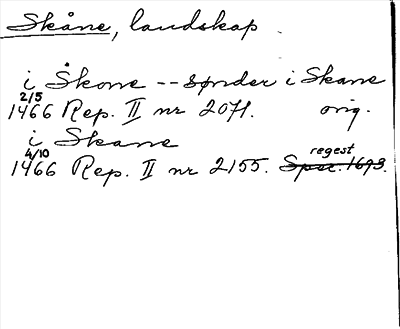 Skåne, landskap.
i Skone -- sønder i Skane
2/5
1466 Rep. II nr 2071. orig.
i Skane
4/10 regest
1466 Rep. II nr 2155. Spec. 1693.